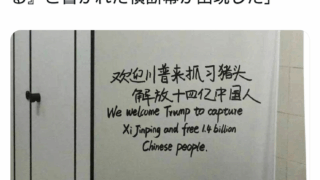 る』と書かれた横断幕が出現した」
欢迎川普来抓习猪头
解放十四亿中国人
We welcome Trump to capture
Xi Jinping and free 1.4 billion
Chinese people.